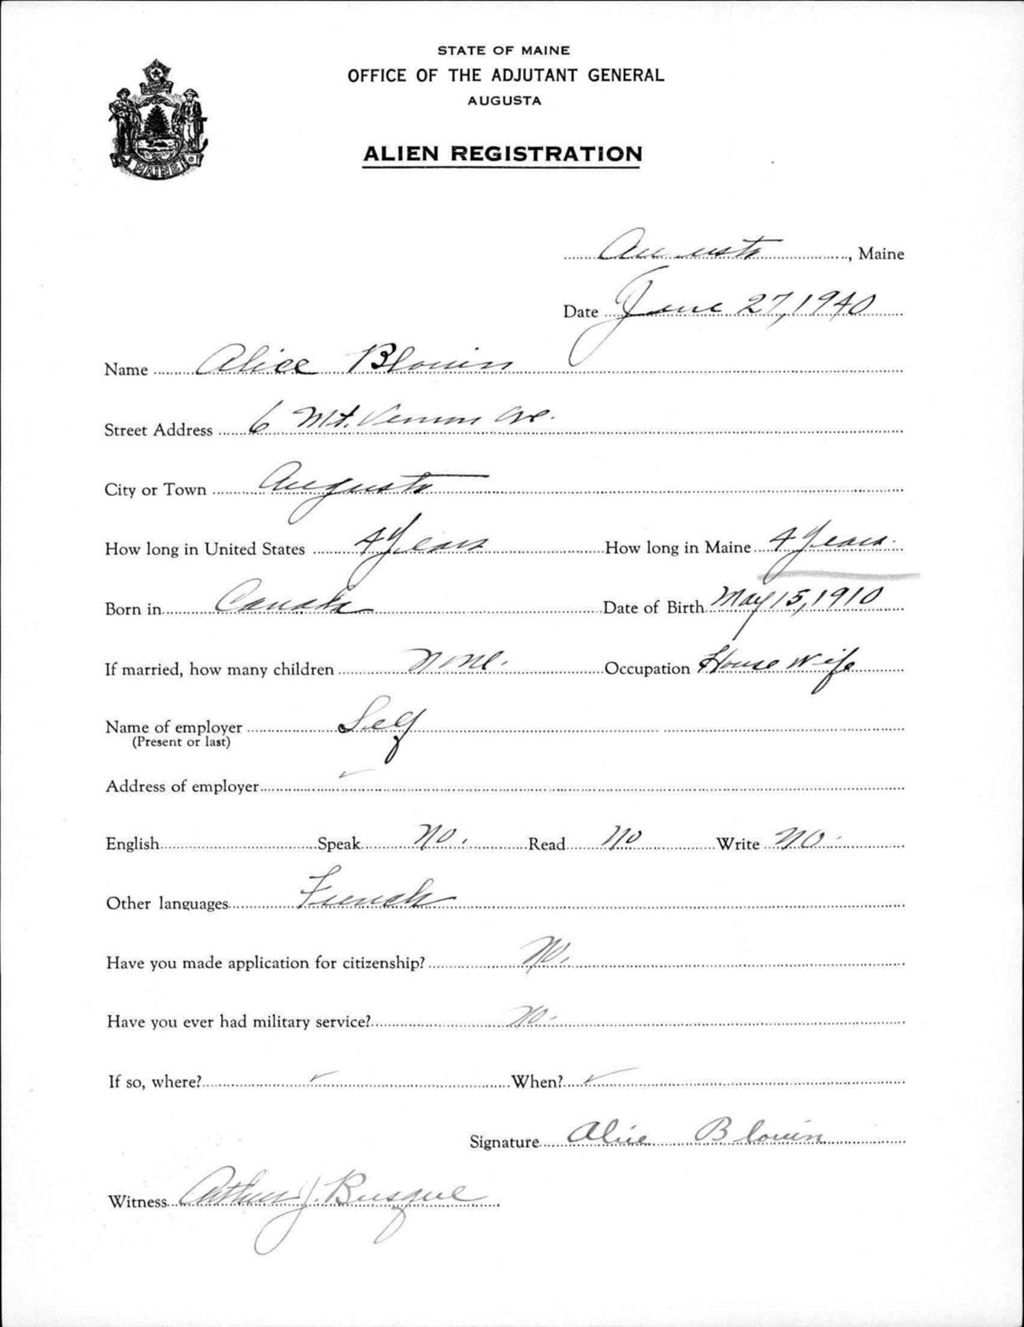 STATE OF MAINE
OFFICE OF THE ADJUTANT GENERAL
AUGUSTA
ALIEN REGISTRATION
MAINE
Augusta, Maine
Date June 27, 1940
Name Alice Blouin
Street Address 6 Mt. Vernon Ave.
City or Town Augusta
How long in United States 4 Years How long in Maine 4 Years.
Born in Canada Date of Birth May 15, 1910
If married, how many children None. Occupation House Wife
Name of employer Self
(Present or last)
Address of employer
English Speak No. Read No Write No.
Other languages French
Have you made application for citizenship? No.
Have you ever had military service? No.
If so, where? When?
Signature Alice Blouin
Witness Arthur J. Busque